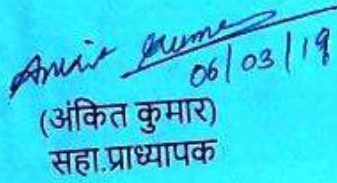 Ankit Kumar
06/03/19
(अंकित कुमार)
सहा.प्राध्यापक